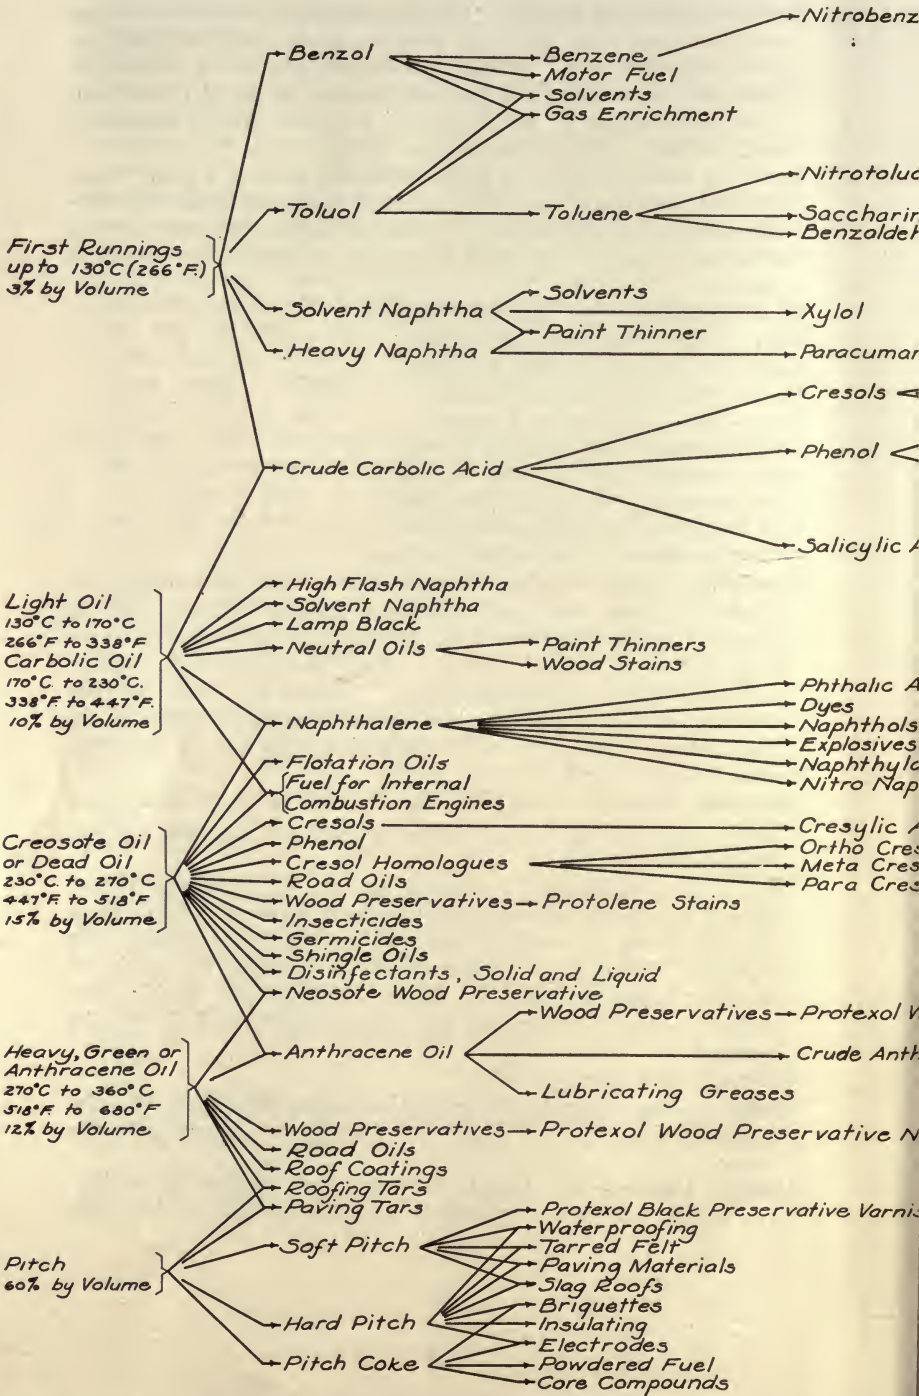 First Runnings
up to 130°C (266°F.)
3% by Volume
Light Oil
130°C to 170°C
266°F to 338°F
Carbolic Oil
170°C. to 230°C.
338°F. to 447°F.
10% by Volume
Creosote Oil
or Dead Oil
230°C. to 270°C
447°F. to 518°F
15% by Volume
Heavy, Green or
Anthracene Oil
270°C to 360°C
518°F. to 680°F
12% by Volume
Pitch
60% by Volume
Benzol
Toluol
Solvent Naphtha
Heavy Naphtha
Crude Carbolic Acid
High Flash Naphtha
Solvent Naphtha
Lamp Black
Neutral Oils
Naphthalene
Flotation Oils
Fuel for Internal
Combustion Engines
Cresols
Phenol
Cresol Homologues
Road Oils
Wood Preservatives
Insecticides
Germicides
Shingle Oils
Disinfectants, Solid and Liquid
Neosote Wood Preservative
Anthracene Oil
Wood Preservatives
Road Oils
Roof Coatings
Roofing Tars
Paving Tars
Soft Pitch
Hard Pitch
Pitch Coke
Benzene
Motor Fuel
Solvents
Gas Enrichment
Toluene
Solvents
Paint Thinner
Paint Thinners
Wood Stains
Protolene Stains
Wood Preservatives
Lubricating Greases
Protexol Wood Preservative N
Protexol Black Preservative Varnis
Waterproofing
Tarred Felt
Paving Materials
Slag Roofs
Briquettes
Insulating
Electrodes
Powdered Fuel
Core Compounds
Nitrobenz
Nitrotoluo
Saccharin
Benzaldeh
Xylol
Paracumar
Cresols
Phenol
Salicylic A
Phthalic A
Dyes
Naphthols
Explosives
Naphthyla
Nitro Nap
Cresylic A
Ortho Cres
Meta Cres
Para Cres
Protexol W
Crude Anth